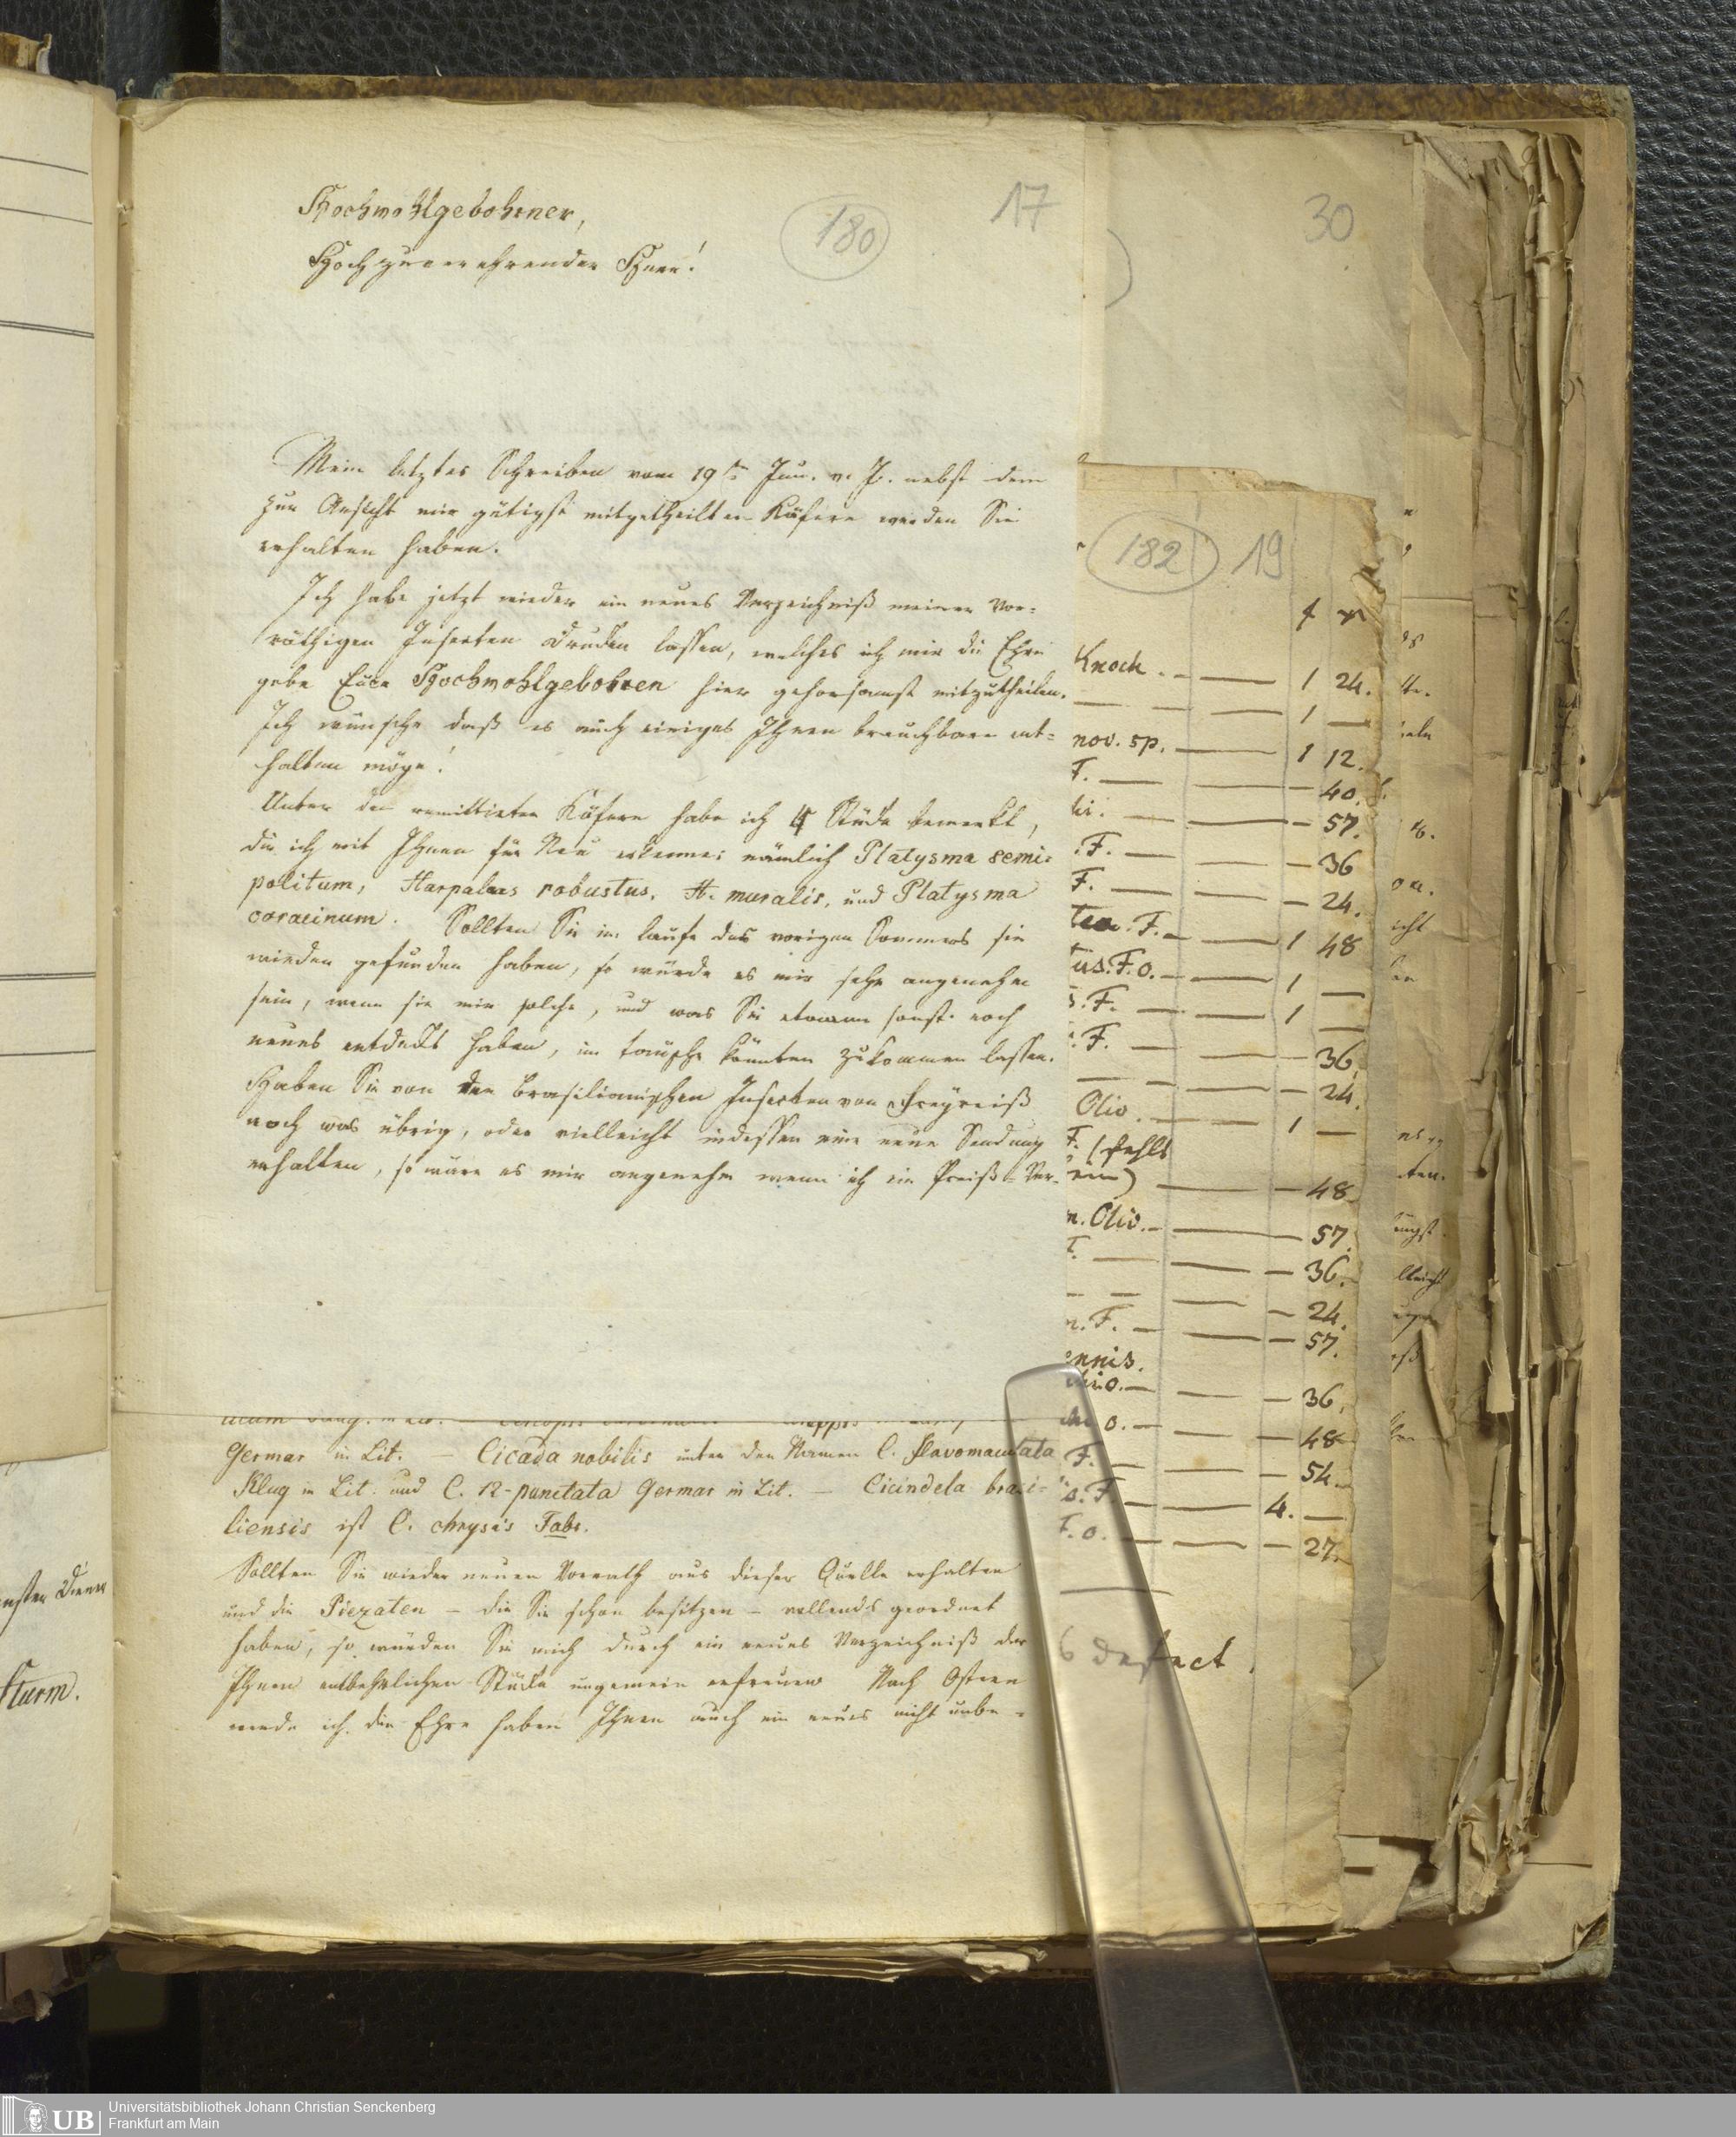 Hochwohlgebohrner,
Hochzuverehrender Herr!
180
17
30
Mein letztes Schreiben vom 19ten Jun. v. J. nebst dem
zur Ansicht mir gütigst mitgetheilten Käfern werden Sie
erhalten haben.
Ich habe jetzt wieder ein neues Verzeichniß meiner vor=
räthigen Insecten drucken lassen, welches ich mir die Ehre
gebe Euer Hochwohlgebohren hier gehorsamst mitzutheilen.
Ich wünsche daß es auch einiges Ihnen brauchbare ent=
halten möge!
Unter den remittirten Käfern habe ich 4 Stücke bemerkt,
die ich mit Ihnen für Neu erkenne; nämlich Platysma semi=
politum, Harpalus robustus, H. muralis, und Platysma
coracinum. Sollten Sie im Laufe des vorigen Sommers sie
wieder gefunden haben, so würde es mir sehr angenehm
sein, wenn sie mir solche, und was Sie etwann sonst noch
neues entdeckt haben, im Tausche könnten zukommen lassen.
Haben Sie von den Brasilianischen Insecten von Freyreiß
noch was übrig, oder vielleicht indessen eine neue Sendung
erhalten, so wäre es mir angenehm wenn ich ein Preiß-Ver-
Germar in Lit. — Cicada nobilis unter den Namen C. flavomaculata
Klug in Lit. und C. 12-punctata Germar in Lit. — Cicindela brasi=
liensis ist C. chrysis Fabr.
Sollten Sie wieder neuen Vorrath aus dieser Quelle erhalten
und die Piezaten — die Sie schon besitzen — vollends geordnet
haben, so würden Sie mich durch ein neues Verzeichniß der
Ihnen entbehrlichen Stücke ungemein erfreuen. Nach Ostern
werde ich die Ehre haben Ihnen auch ein neues nicht unbe-
182
19
Knoch. — — 1 24.
— — 1 —
nov. sp. — — 1 12.
F. — — — 40.
— — 57.
F. — — — 36
F. — — — 24.
F. — — 1 48
us. F. o. — — 1 —
F. — — 1 —
F. — — — 36.
— — — 24.
Oliv. — — 1 —
F. (fehlt
ein) — — 48
Oliv. — — — 57.
— — — 36.
— — — 24.
F. — — — 57.
ennis.
o. — — — 36.
o. — — — 48
F. — — — 54.
F. — — 4. —
F. o. — — — 27.
6 defect.
Sturm.
Universitätsbibliothek Johann Christian Senckenberg
Frankfurt am Main
UB